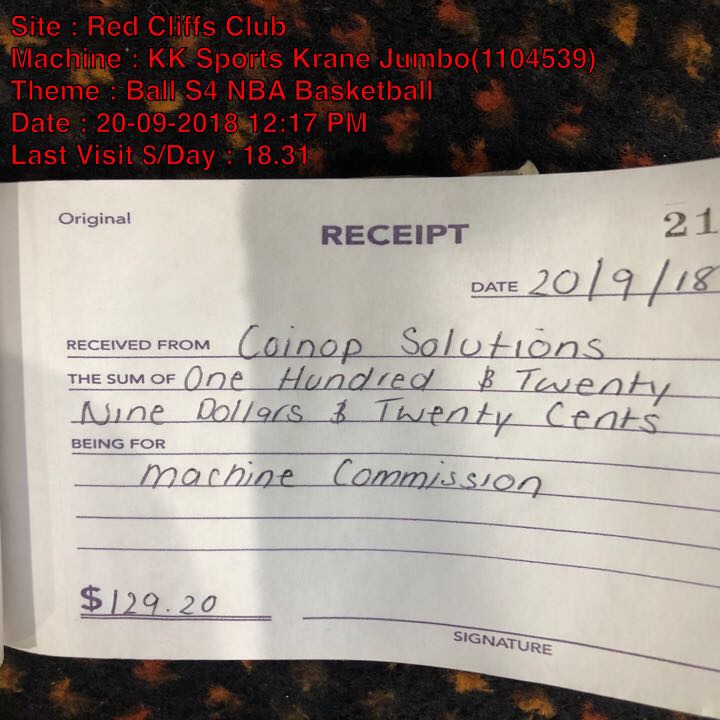 Site : Red Cliffs Club
Machine : KK Sports Krane Jumbo(1104539)
Theme : Ball S4 NBA Basketball
Date : 20-09-2018 12:17 PM
Last Visit $/Day : 18.31
Original
RECEIPT
21
DATE 20/9/18
RECEIVED FROM Coinop Solutions
THE SUM OF One Hundred & Twenty
Nine Dollars & Twenty Cents
BEING FOR
Machine Commission
$129.20
SIGNATURE